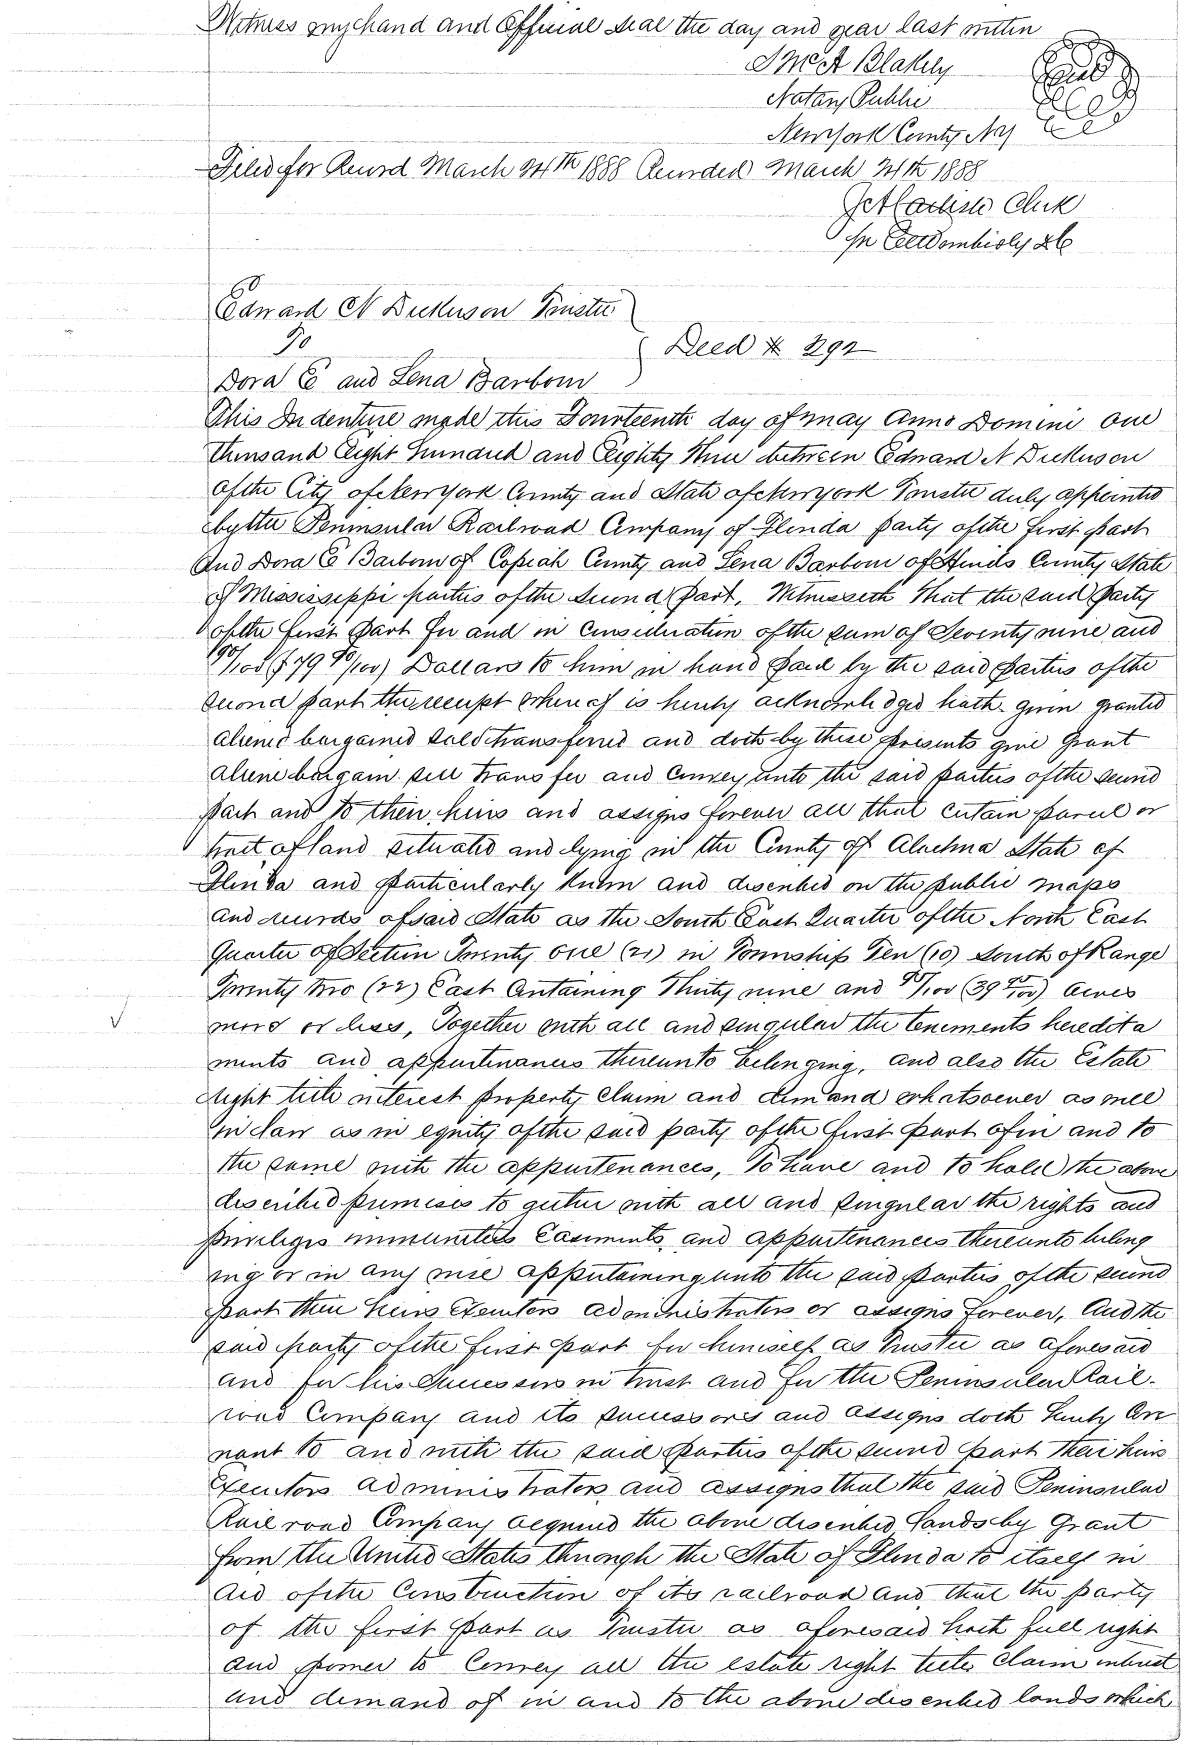 Witness my hand and Official seal the day and year last written
J McA Blakely
Notary Public
New York County NY
Seal
Filed for Record March 24th 1888 Recorded March 24th 1888
Clerk
Edward N Dickerson Trustee
To
Deed # 292
Dora E and Lena Barbour
This Indenture made this Fourteenth day of May Anno Domini one
thousand Eight hundred and Eighty Three between Edward N Dickerson
of the City of New York County and State of New York Trustee duly appointed
by the Peninsular Railroad Company of Florida party of the first part
And Dora E Barbour of Copiah County and Lena Barbour of Hinds County State
of Mississippi parties of the second part, Witnesseth That the said Party
of the first Part for and in consideration of the sum of Seventy nine and
90/100 ($79 90/100) Dollars to him in hand paid by the said parties of the
second part the receipt whereof is hereby acknowledged hath given granted
aliened bargained sold transferred and doth by these presents give grant
aliene bargain sell transfer and convey unto the said parties of the second
part and to their heirs and assigns forever all that certain parcel or
tract of land situated and lying in the County of Alachua State of
Florida and particularly known and described on the public maps
and records of said State as the South East Quarter of the North East
Quarter of Section Twenty one (21) in Township Ten (10) South of Range
Twenty two (22) East Containing Thirty nine and 95/100 (39 95/100) Acres
more or less, Together with all and singular the tenements heredita
ments and appurtenances thereunto belonging, and also the Estate
right title interest property claim and demand whatsoever as well
in law as in equity of the said party of the first part of in and to
the same with the appurtenances, To have and to hold the above
described premises to gether with all and singular the rights and
privileges immunities Easments and appurtenances thereunto belong
ing or in any wise appertaining unto the said parties of the second
part their heirs Executors administrators or assigns forever, And the
said party of the first part for himself as Trustee as aforesaid
and for his Successors in trust and for the Peninsular Rail-
road Company and its successors and assigns doth hereby Cov
nant to and with the said parties of the second part their heirs
Executors administrators and assigns that the said Peninsular
Rail road Company acquired the above described lands by Grant
from the United States through the State of Florida to itself in
aid of the Construction of its railroad and that the party
of the first part as Trustee as aforesaid hath full right
and power to Convey all the estate right title claim interest
and demand of in and to the above described lands which